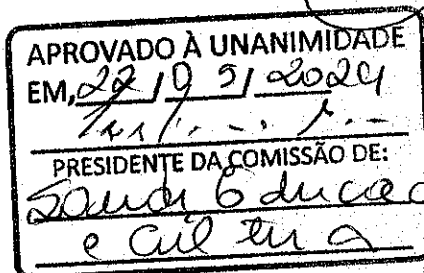 APROVADO À UNANIMIDADE
EM, 22 / 05 / 2024
PRESIDENTE DA COMISSÃO DE:
Saude Educaca
e Cultura